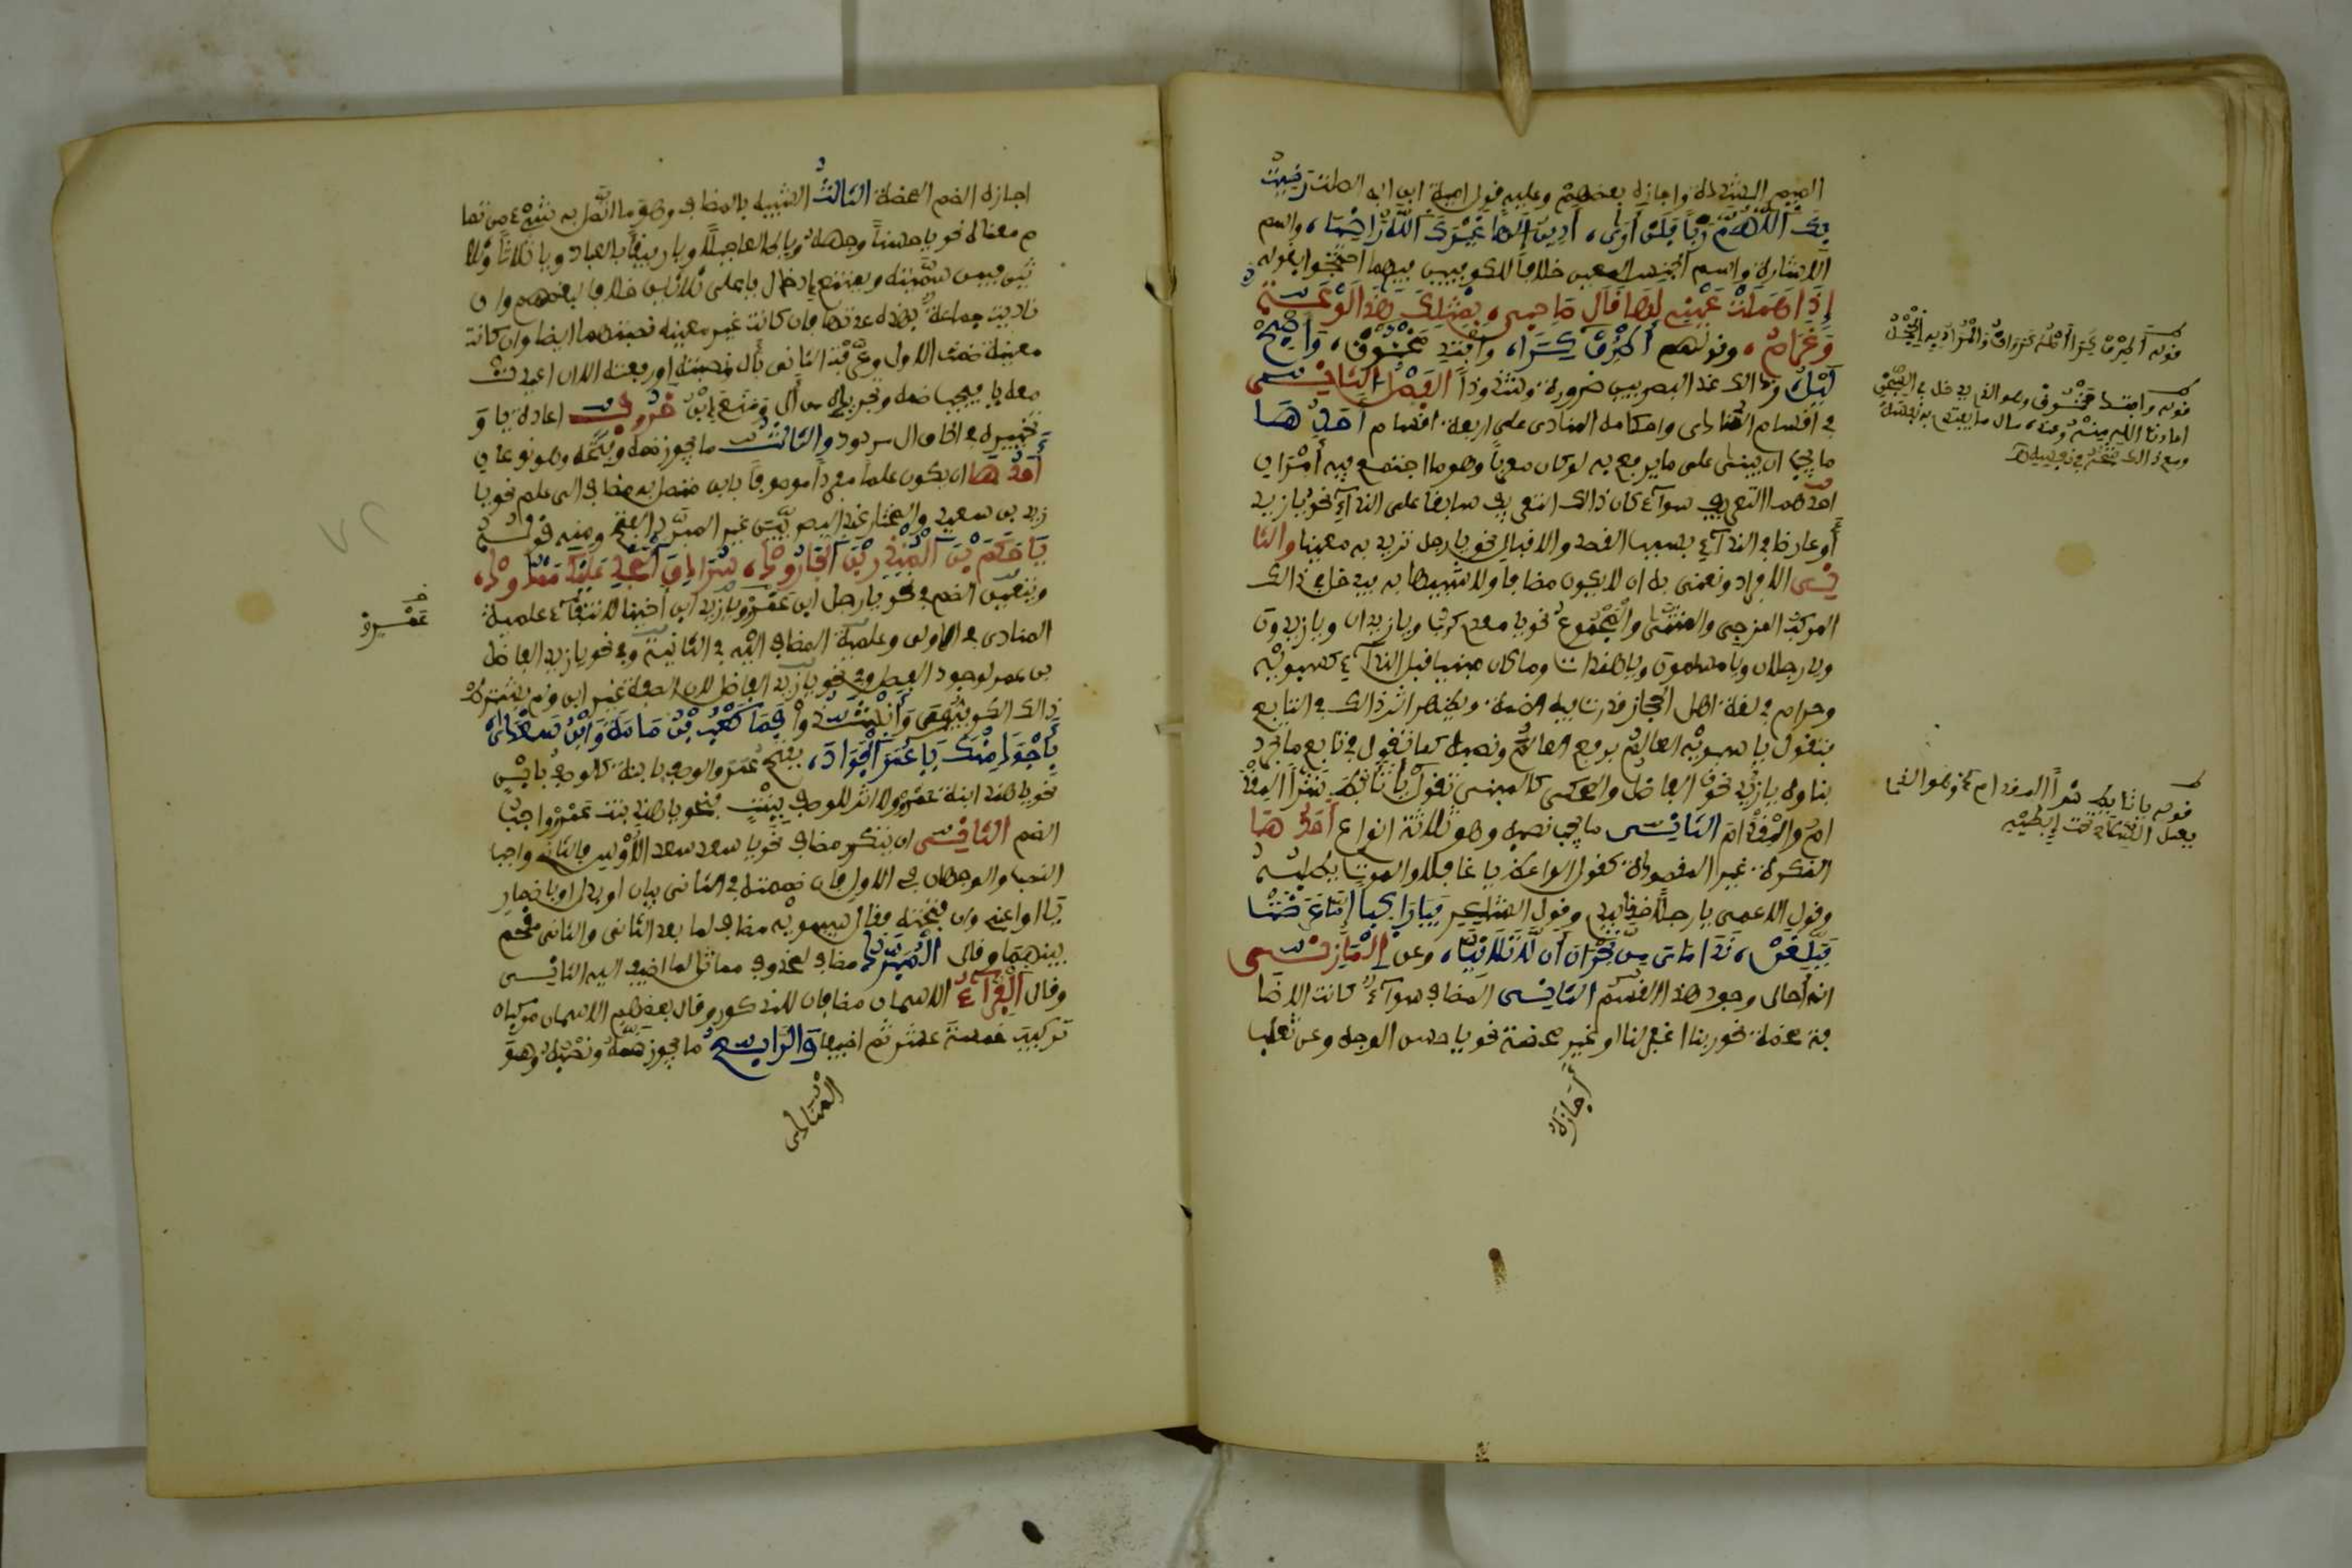 الميم المشددة واجازه بعضهم وعليه قول امية ابن ابي الصلت رَضِيتُ
بِكَ اللَّهُمَّ رَبًّا فَلَنْ أُرَى، أَدِينُ إِلَهًا غَيْرَكَ اللَّهُ رَاضِيًا، واسم
الاشارة واسم الجنس المعين خلافا للكوفيين فيهما احتجوا بقوله
إِذَا هَمَلَتْ عَيْنِي لَهَا قَالَ صَاحِبِي، بِمِثْلِكَ هَذَا لَوْعَةٌ
وَغَرَامُ، وقولهم أَطْرِقْ كَرَا، وَافْتَدِ مَخْنُوقُ، وَأَصْبِحْ
لَيْلُ، وذالك عند البصريين ضرورة وشذوذ الفَصْلُ الثَّانِي
في اقسام المنادى واحكامه المنادى على اربعة اقسام أَحَدُهَا
ما يجب ان يبنى على ما يرفع به لو كان معربا وهو ما اجتمع فيه أمران
احدهما التعريف سواء كان ذالك التعريف سابقا على النداء نحو يا زيد
أو عارضا في النداء بسبب القصد والاقبال نحو يا رجل تريد به معينا والثا
نِي الافراد ونعنى به ان لا يكون مضافا ولا شبيها به فيدخل في ذالك
المركب المزجي والمثنى والمجموع نحو يا معدي كرب ويا زيدان ويا زيدون
ويا رجلان ويا مسلمون ويا هندات وما كان مبنيا قبل النداء كسيبويه
وحذام في لغة اهل الحجاز قدرت فيه الضمة ويظهر اثر ذالك في التابع
فتقول يا سيبويه العالم برفع العالم ونصبه كما تقول في تابع ما تجدد
بناؤه يا زيد نحو الفاضل والمحكى كالمبني تقول يا تأبط شرا المقد
ام والمقدام الثَّانِي ما يجب نصبه وهو ثلاثة انواع أَحَدُهَا
النكرة غير المقصودة كقول الواعظ يا غافلا والموت يطلبه
وقول الاعمى يا رجلا خذ بيدي وقول الشاعر فَيَا رَاكِبًا إِمَّا عَرَضْتَ
فَبَلِّغَنْ، نَدَامَايَ مِن نَّجْرَانَ أَن لَّا تَلَاقِيَا، وعن المَازِنِي
انه أحال وجود هذا القسم الثَّانِي المضاف سواء كانت الاضا
فة محضة نحو ربنا اغفر لنا او غير محضة نحو يا حسن الوجه وعن ثعلب
اجازة
قوله أَطْرِقْ كَرَا
قوله وافتد مخنوق
قوله يا تأبط شرا المقدام
اجازة الضم المحضة الثَّالِثُ الشبيه بالمضاف وهو ما اتصل به شيء من تما
م معناه نحو يا حسنا وجهه ويا طالعا جبلا ويا رفيقا بالعباد ويا ثلاثة وثلا
ثين فيمن سميته ويمتنع ادخال يا على ثلاثين خلافا لبعضهم وان
ناديت جماعة هذه عدتها فان كانت غير معينة نصبتهما ايضا وان كانت
معينة ضممت الاول وعرفت الثاني بأل ونصبته او رفعته الا ان اعيدت
معه يا فيجب ضمه وتجريده من أل ومنع ابن خَرُوفٍ اعادة يا و
تخييره في الحاق ال مردود والثالث ما يجوز ضمه وفتحه وهو نوعان
أَحَدُهَا ان يكون علما مفردا موصوفا بابن متصل به مضاف الى علم نحو يا
زيد بن سعيد والمختار عند البصريين غير المبرد الفتح ومنه قوله
يَا حَكَمُ بْنَ الْمُنْذِرِ بْنَ الْجَارُودْ، سُرَادِقُ الْمَجْدِ عَلَيْكَ مَمْدُودْ،
ويتعين الضم في نحو يا رجل ابن عمرو ويا زيد ابن أخينا لانتفاء علمية
المنادى في الاولى وعلمية المضاف اليه في الثانية وفي نحو يا زيد الفاضل
بن عمر لوجود الفصل وفي نحو يا زيد الفاضل لان الصفة غير ابن ولم يشترط
ذالك الكوفيون وَأَنْشَدُوا فَمَا كَعْبُ بْنُ مَامَةَ وَابْنُ سَعْدَى
بِأَجْوَدَ مِنْكَ يَا عُمَرَ الْجَوَادَ، بفتح عمر والوصف بابنة كالوصف بابن
نحو يا هند ابنة عمرو ولا اثر للوصف ببنت فنحو يا هند بنت عمرو واجب
الضم الثَّانِي ان يتكرر مضافا نحو يا سعد سعد الاوس فالثاني واجب
النصب والوجهان في الاول فان ضممته فالثاني بيان او بدل او باضمار
يا او اعني وان فتحته فقال سيبويه مضاف لما بعد الثاني والثاني مقحم
بينهما وقال المُبَرِّدُ مضاف لمحذوف مماثل لما اضيف اليه الثاني
وقال الفَرَّاءُ الاسمان مضافان للمذكور وقال بعضهم الاسمان مركبان
تركيب خمسة عشر ثم اضيفا وَالرَّابِعُ ما يجوز ضمه ونصبه وهو
المنادى
عمرو